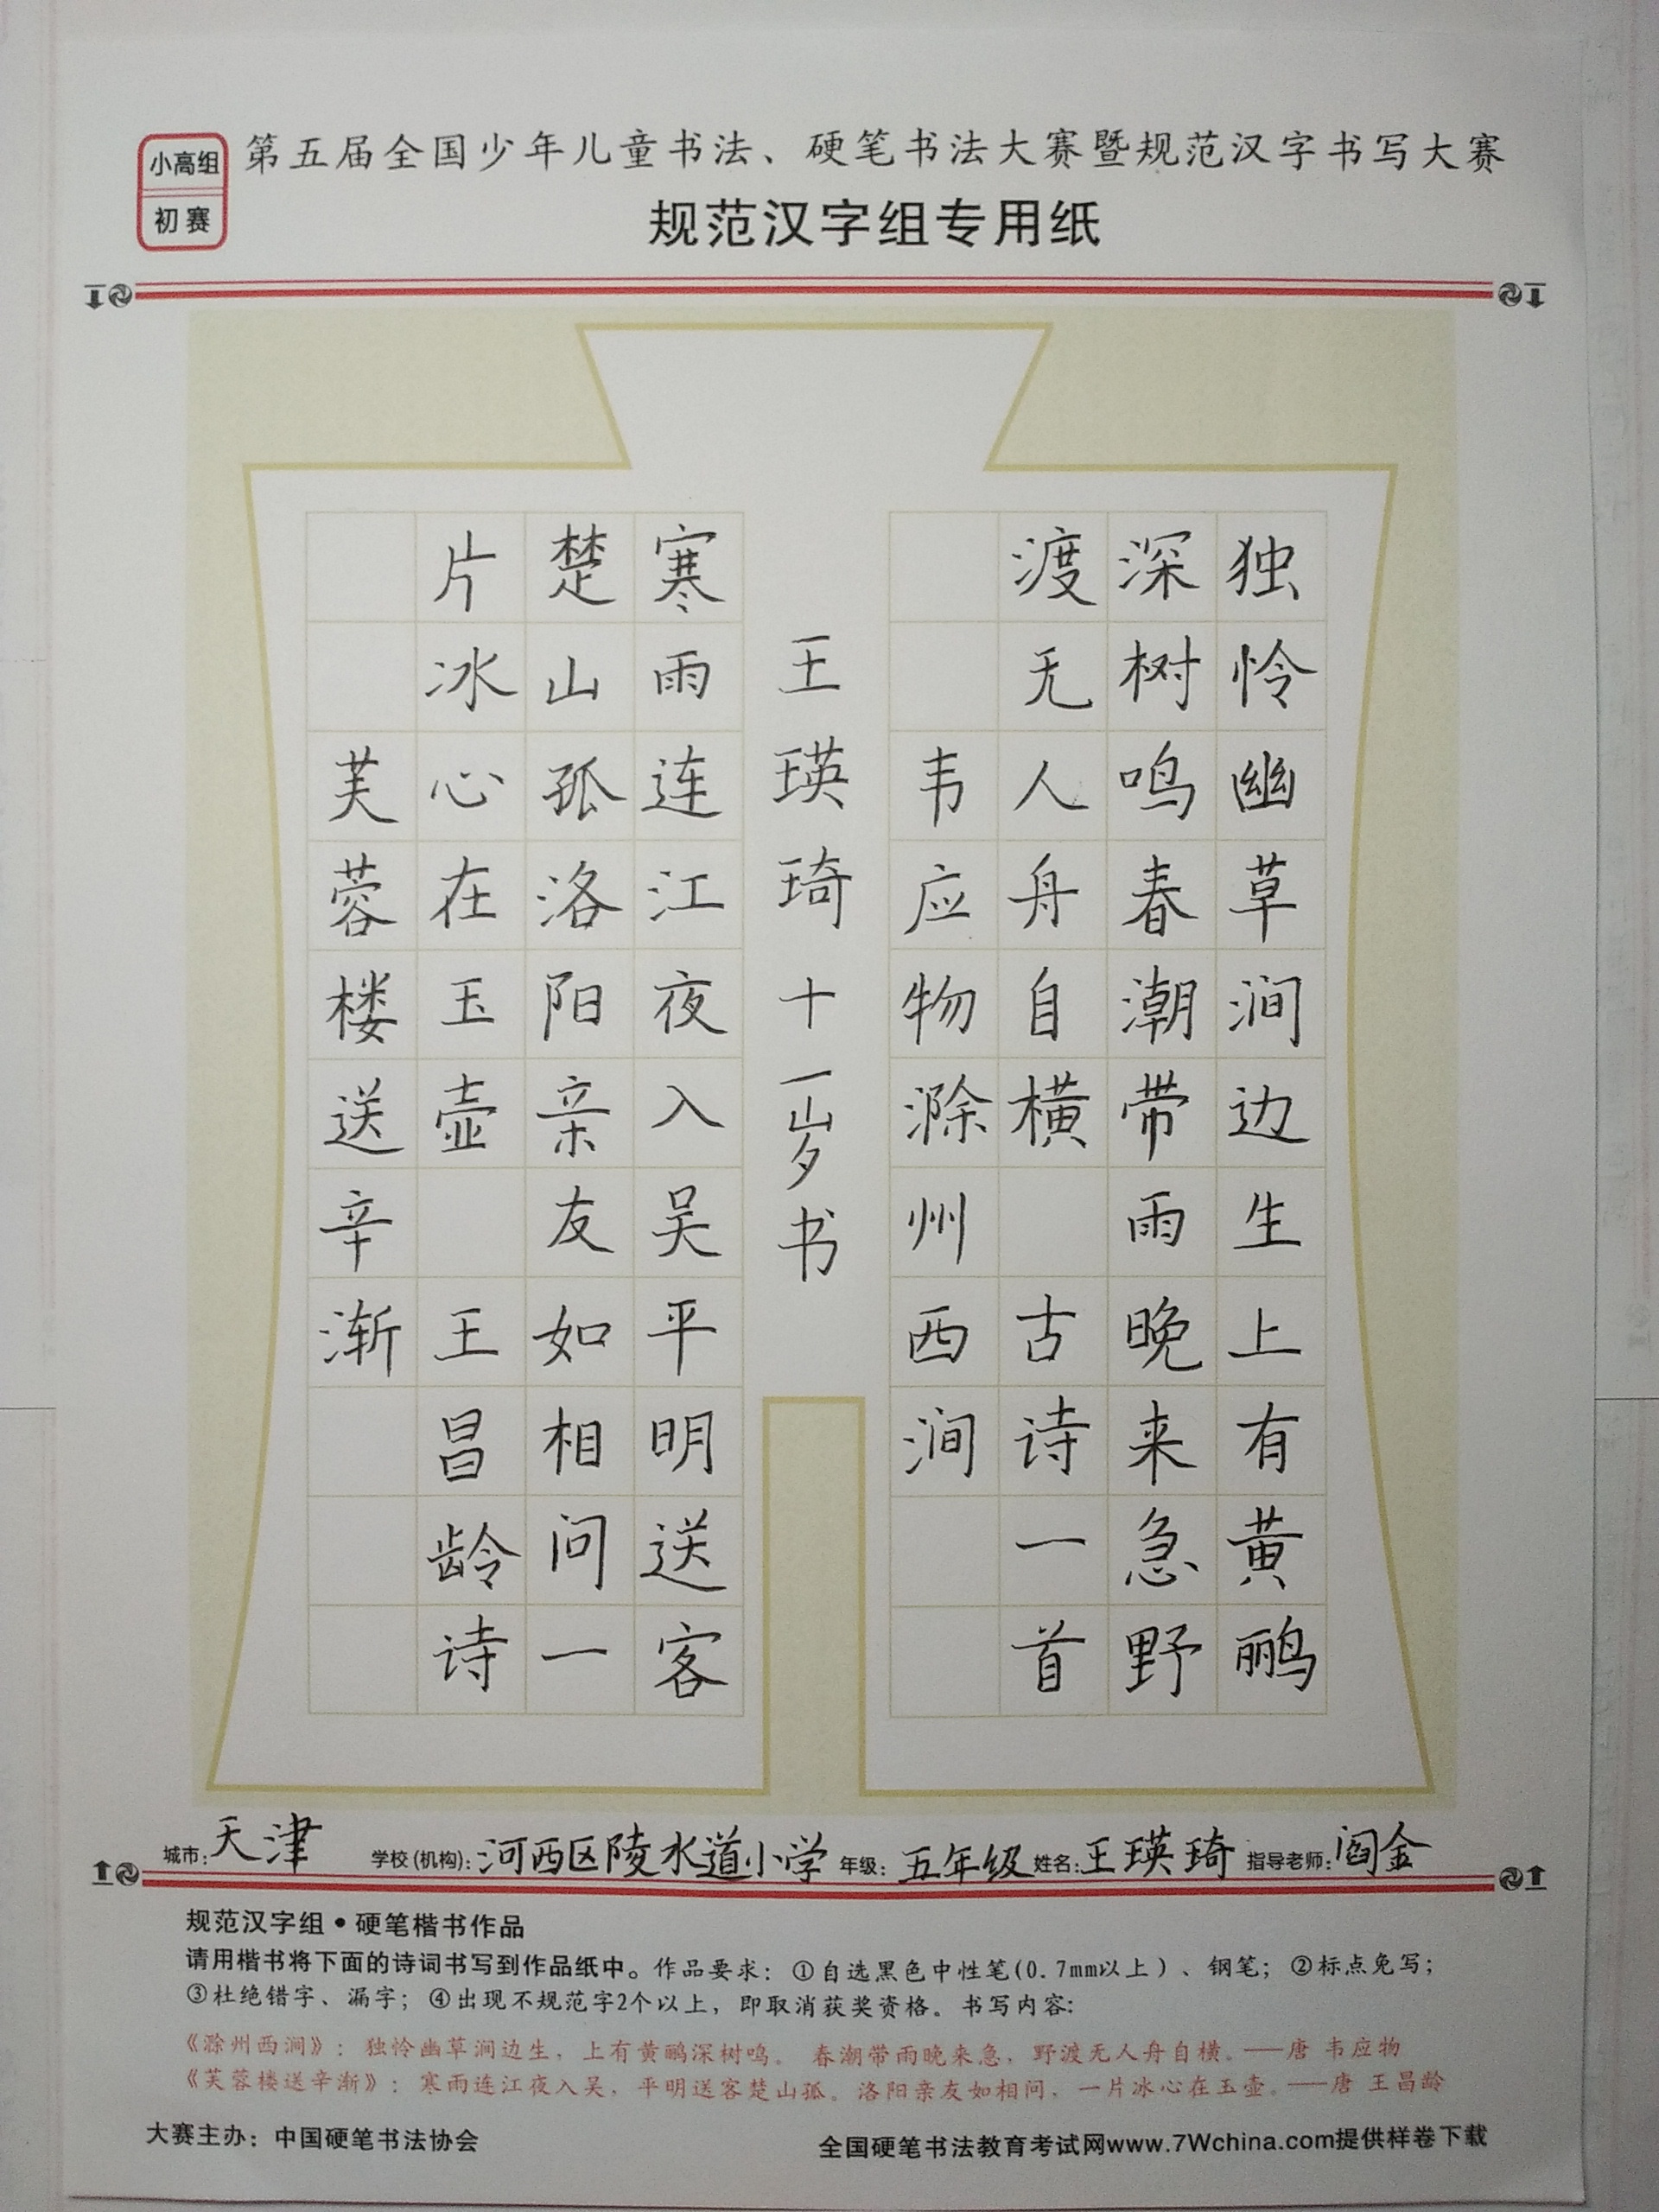 小高组
初赛
第五届全国少年儿童书法、硬笔书法大赛暨规范汉字书写大赛
规范汉字组专用纸
独怜幽草涧边生上有黄鹂
深树鸣春潮带雨晚来急野
渡无人舟自横 古诗一首
韦应物滁州西涧
王瑛琦十一岁书
寒雨连江夜入吴平明送客
楚山孤洛阳亲友如相问一
片冰心在玉壶 王昌龄诗
芙蓉楼送辛渐
城市:天津 学校(机构):河西区陵水道小学 年级:五年级 姓名:王瑛琦 指导老师:阎金
规范汉字组•硬笔楷书作品
请用楷书将下面的诗词书写到作品纸中。作品要求:①自选黑色中性笔(0.7mm以上)、钢笔;②标点免写;
③杜绝错字、漏字;④出现不规范字2个以上,即取消获奖资格。书写内容:
《滁州西涧》:独怜幽草涧边生,上有黄鹂深树鸣。 春潮带雨晚来急,野渡无人舟自横。——唐 韦应物
《芙蓉楼送辛渐》:寒雨连江夜入吴,平明送客楚山孤。洛阳亲友如相问,一片冰心在玉壶。——唐 王昌龄
大赛主办:中国硬笔书法协会
全国硬笔书法教育考试网www.7Wchina.com提供样卷下载